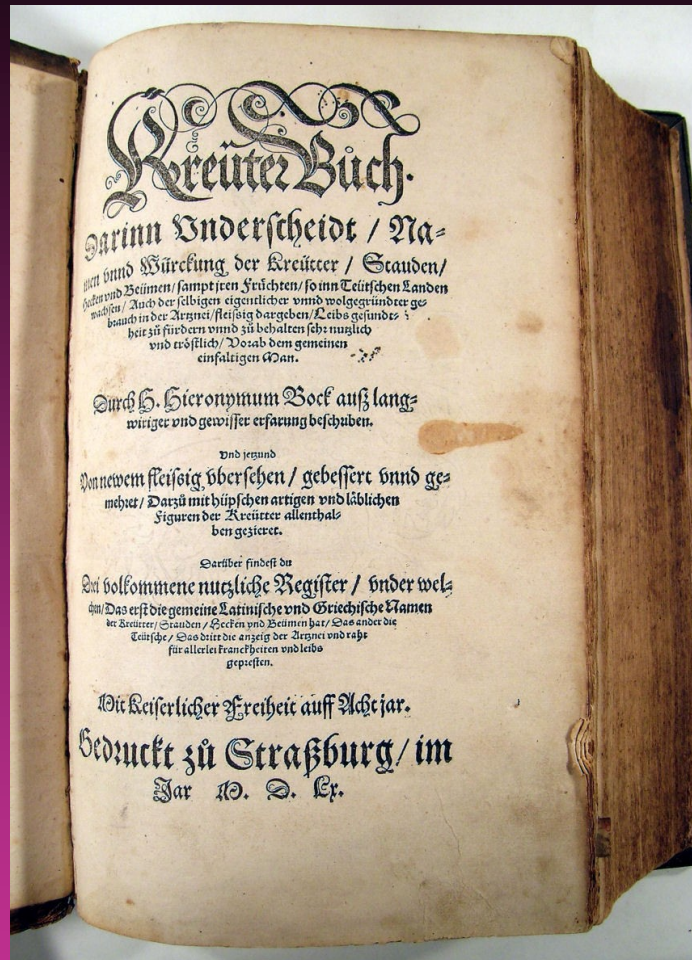 Kreüter Bůch.
Darinn Vnderscheidt / Na⸗
men vnnd Würckung der Kreütter / Stauden /
Hecken vnd Beümen / sampt jren Früchten / so inn Teütschen Landen
wachsen / Auch der selbigen eigentlicher vnnd wolgegründter ge⸗
brauch in der Artznei / fleissig dargeben / Leibs gesundt⸗
heit zů fürdern vnnd zů behalten sehr nutzlich
vnd tröstlich / Vorab dem gemeinen
einfaltigen Man.
Durch H. Hieronymum Bock auß lang⸗
wiriger vnd gewisser erfarung beschriben.
Vnd jetzund
Von newem fleissig vbersehen / gebessert vnnd ge⸗
mehret / Darzů mit hüpschen artigen vnd läblichen
Figuren der Kreütter allenthal⸗
ben gezieret.
Darüber findest du
Drei volkommene nutzliche Register / vnder wel⸗
chen / Das erst die gemeine Latinische vnd Griechische Namen
der Kreütter / Stauden / Hecken vnd Beümen hat / Das ander die
Teütsche / Das dritt die anzeig der Artznei vnd raht
für allerlei kranckheiten vnd leibs
gepresten.
Mit Keiserlicher Freiheit auff Acht jar.
Gedruckt zů Straßburg / im
Jar M. D. Lx.